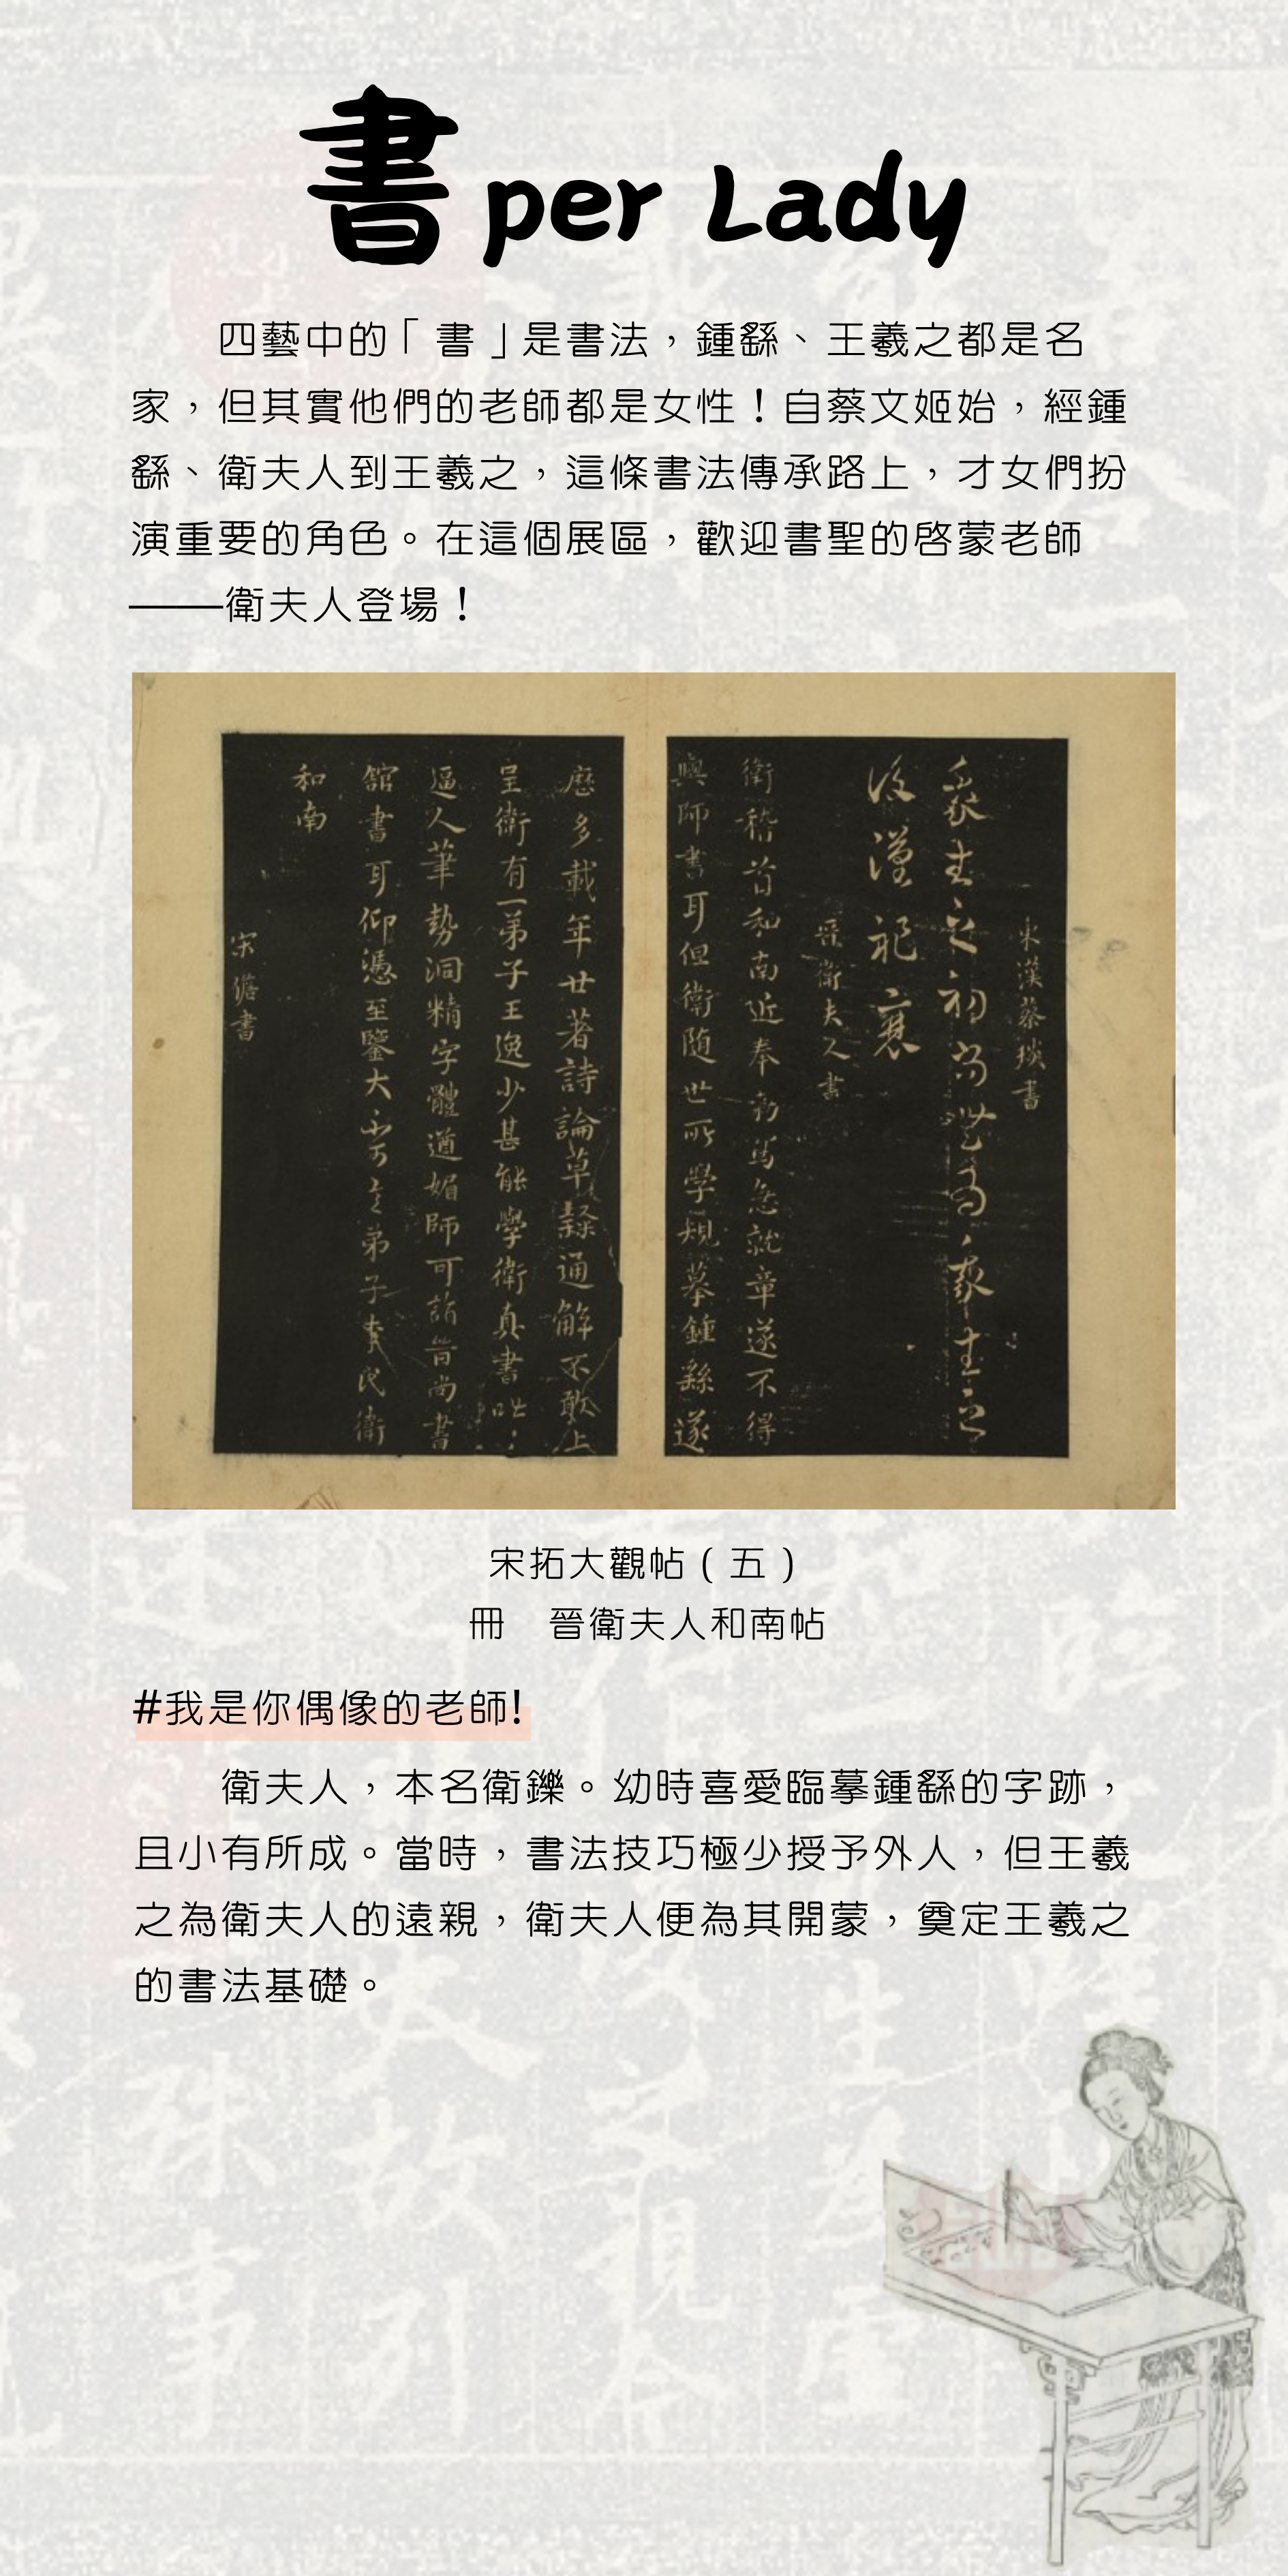 書 per Lady
四藝中的「書」是書法，鍾繇、王羲之都是名
家，但其實他們的老師都是女性！自蔡文姬始，經鍾
繇、衛夫人到王羲之，這條書法傳承路上，才女們扮
演重要的角色。在這個展區，歡迎書聖的啓蒙老師
——衛夫人登場！
東漢蔡琰書
我生之初尚無為我生之
後漢祚衰
晉衛夫人書
衛稽首和南近奉勑寫急就章遂不得
與師書耳但衛隨世所學規摹鍾繇遂
歷多載年廿著詩論草隸通解不敢上
呈衛有一弟子王逸少甚能學衛真書咄咄
逼人筆勢洞精字體遒媚師可詣晉尚書
館書耳仰憑至鑒大不可言弟子李氏衛
和南
宋儋書
宋拓大觀帖(五)
冊　晉衛夫人和南帖
#我是你偶像的老師!
衛夫人，本名衛鑠。幼時喜愛臨摹鍾繇的字跡，
且小有所成。當時，書法技巧極少授予外人，但王羲
之為衛夫人的遠親，衛夫人便為其開蒙，奠定王羲之
的書法基礎。